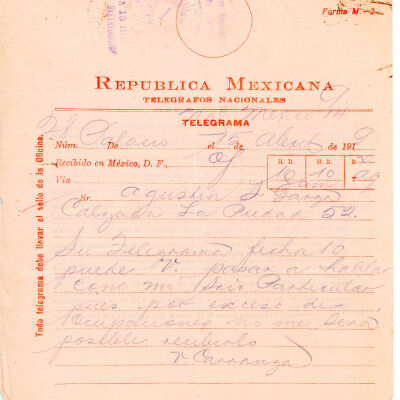 Forma M.-2
REPUBLICA MEXICANA
TELEGRAFOS NACIONALES
TELEGRAMA
Mexico 14
28 Palacio 15 Abril 9
Núm. De el de 191
Recibido en México, D. F.,
H. D. H. R. B.
Vía 16 10
Sr. Agustin Garza
Calzada La Piedad 52.
Su Telegrama fecha 10
puede V. pasar a hablar
con mi Srio Particular
pues por exceso de
Ocupaciones no me será
posible recibirlo
V Carranza
Todo telegrama debe llevar el sello de la Oficina.